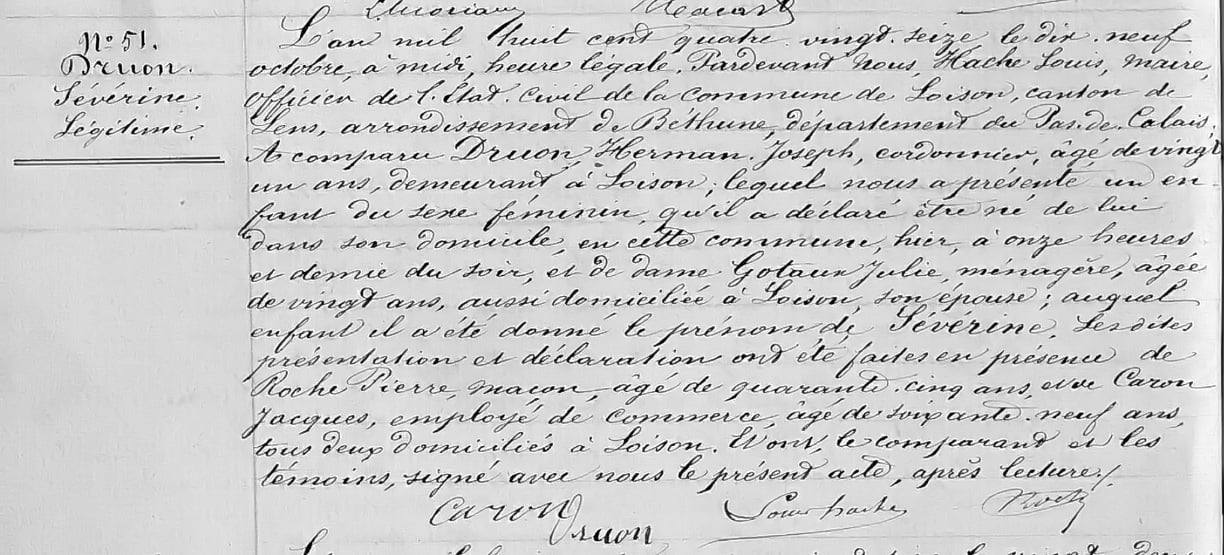 Nº 51.
Druon.
Sévérine.
Légitime.
L'an mil huit cent quatre-vingt-seize le dix-neuf
octobre, à midi, heure légale. Pardevant nous, Hache Louis, maire,
officier de l'État-civil de la commune de Loison, canton de
Lens, arrondissement de Béthune, département du Pas-de-Calais,
A comparu Druon, Herman-Joseph, cordonnier, âgé de vingt
un ans, demeurant à Loison; lequel nous a présenté un en-
fant du sexe féminin, qu'il a déclaré être né de lui
dans son domicile, en cette commune, hier, à onze heures
et demie du soir, et de dame Gotaux Julie, ménagère, âgée
de vingt ans, aussi domiciliée à Loison, son épouse; auquel
enfant il a été donné le prénom de Sévérine. Lesdites
présentation et déclaration ont été faites en présence de
Roche Pierre, maçon, âgé de quarante-cinq ans, et de Caron
Jacques, employé de commerce, âgé de soixante-neuf ans,
tous deux domiciliés à Loison. Et ont, le comparant et les
témoins, signé avec nous le présent acte, après lecture./.
Caron Druon Louis Hache Roche